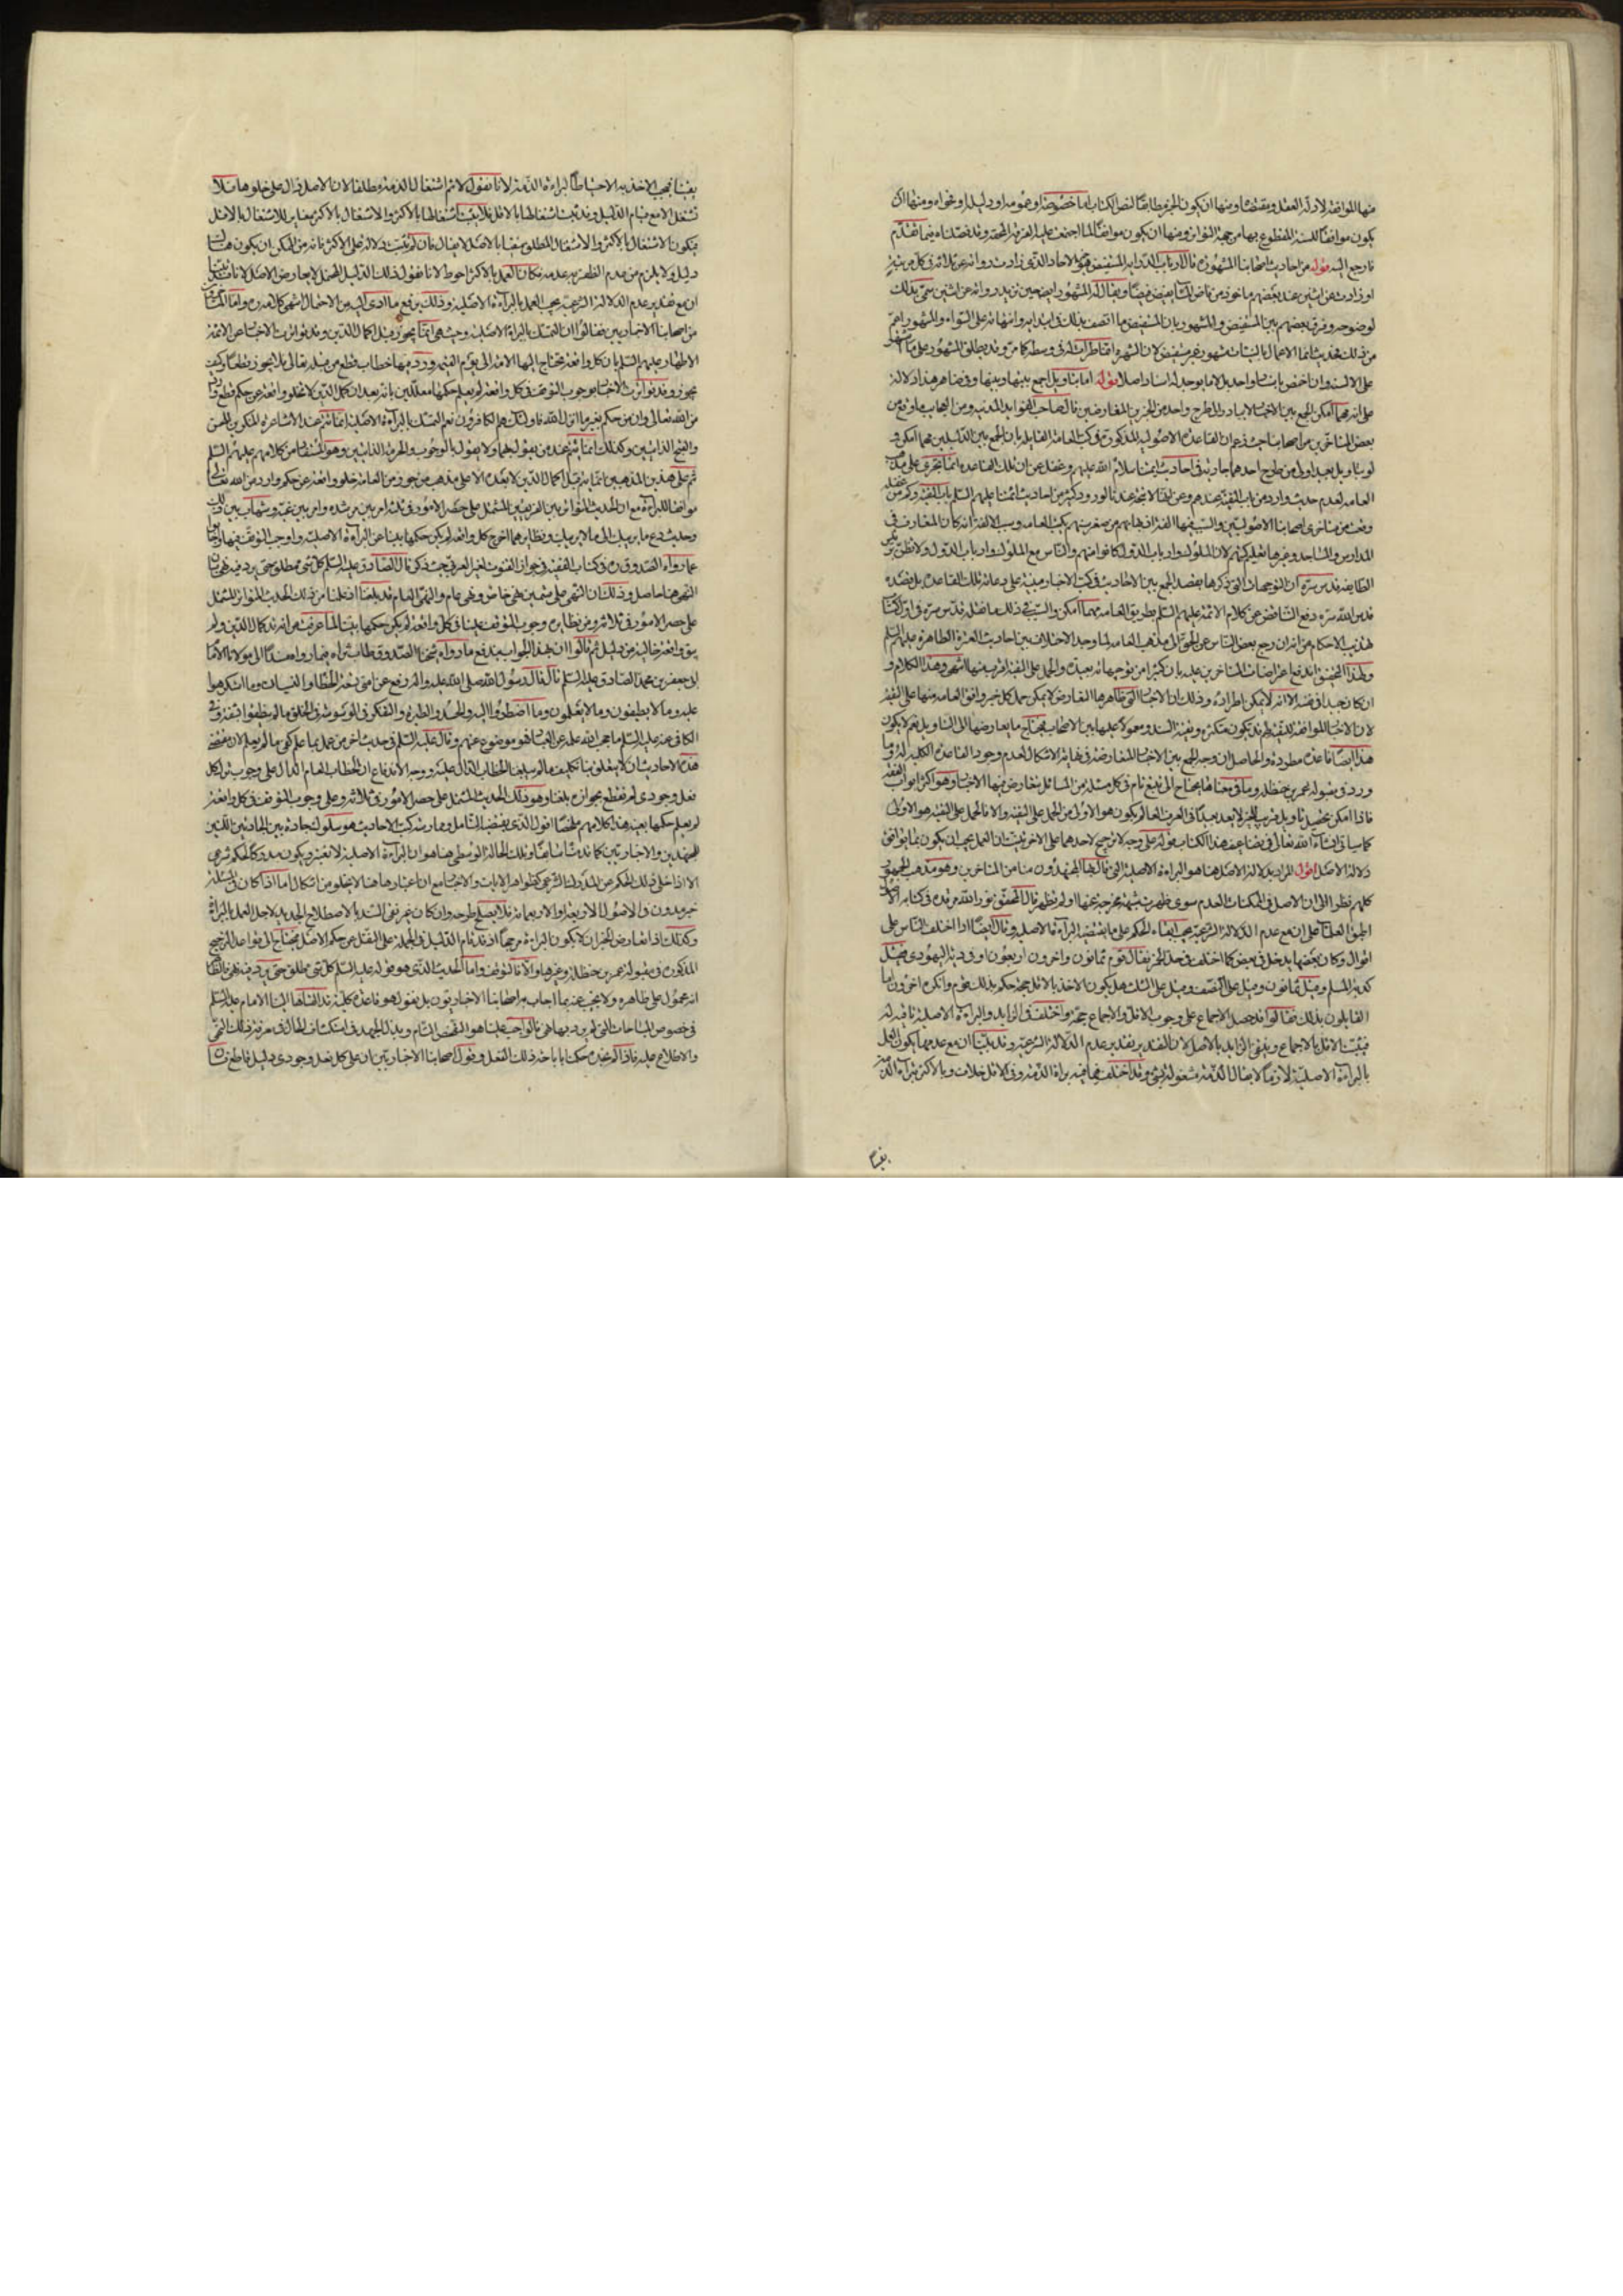 منها الموافقة لادلة العقل ومقتضاه ومنها ان يكون الخبر مطابقا لنص الكتاب اما خصوصه او عمومه او دليله او فحواه ومنها ان
يكون موافقا للسنة المقطوع بها من جهة التواتر ومنها ان يكون موافقا لما اجتمعت عليه الفرقة المحقة وقد فصلناه فيما تقدم
فارجع اليه قوله من احاديث اصحابنا المشهورة قال ارباب الدراية المستفيض هو الاحاد الذي زادت رواته عن ثلاثة في كل مرتبة
او زادت عن اثنين عند بعضهم ماخوذ من فاض الماء يفيض فيضا ويقال له المشهور ايضا حين يزيد رواته عن اثنين سمي بذلك
لوضوحه وفرق بعضهم بين المستفيض والمشهور بان المستفيض ما اتصف بذلك في ابتدائه وانتهائه على السواء والمشهور اعم
من ذلك فحديث انما الاعمال بالنيات مشهور غير مستفيض لان الشهرة انما طرات له في وسطه كما مر وقد يطلق المشهور على ما اشتهر
على الالسنة وان اختص باسناد واحد بل لا ما يوجد له اسناد اصلا قوله اما بتاويل اجمع بينها وبينها وفي ظاهر هذا دلالة
على انه مهما امكن الجمع بين الاخبار لا يبادر الى طرح واحد من الخبرين المتعارضين قال صاحب الفوائد المدنية ومن العجايب ما وقع من
بعض المتاخرين من اصحابنا حيث زعم ان القاعدة الاصولية المذكورة في كتب العامة القايلة بان الجمع بين الدليلين مهما امكن و
لو بتاويل بعيد اولى من طرح احدهما جارية في احاديث ائمتنا سلام الله عليهم وغفل عن ان تلك القاعدة انما تجري على مذهب
العامة لعدم حديث وارد من باب التقية عندهم
المدارس والمساجد وغيرها تعليم كتبهم لان الملوك وارباب الدول كانوا منهم والناس مع الملوك وارباب الدول ولا تظن برئيس
الطايفة قدس سره ان التوجيهات التي ذكرها بقصد الجمع بين الاحاديث في كتب الاخبار مبنية على رعاية تلك القاعدة بل قصده
قدس الله سره دفع التناقض عن كلام الائمة عليهم السلم بطريق العامة مهما امكن والسبب في ذلك ما نقله قدس سره في اول كتاب
تهذيب الاحكام من انه ان رجع بعض الناس عن الحق الى مذهب العامة لما وجد الاختلاف بين احاديث العترة الطاهرة عليهم السلم
وبهذا التحقيق اندفع اعتراضات المتاخرين عليه بان كثيرا من توجيهاته بعيدة والحمل على التقية اقرب منها انتهى وهذا الكلام و
ان كان جيدا في نفسه الا انه لا يمكن اطراده وذلك ان الاخبار التي ظاهرها التعارض لا يمكن حمل كل خبر وافق العامة منها على التقية
لان الاخبار الموافقة للتقية قد تكون متكثرة ونقية السند ومعولا عليها بين الاصحاب فيحتاج ما يعارضها الى التاويل نعم لا يكون
هذا ايضا قاعدة مطردة والحاصل ان وجه الجمع بين الاخبار المتعارضة في غاية الاشكال لعدم وجود القاعدة الكلية له وما
ورد في مقبولة عمر بن حنظلة وما في معناها يحتاج الى تتبع تام في كل مسئلة من المسائل تعارض فيها الاخبار وهو اكثر ابواب الفقه
فاذا امكن تحصيل تاويل قريب للخبر لا يعد بعيدا في العرف العام يكون هو الاولى من الحمل على التقية والا فالحمل على التقية هو الاولى
كما سياتي انشاء الله تعالى في تضاعيف هذا الكتاب قوله على وجه لا ترجيح لاحدهما على الاخر بينت ان العمل يجب ان يكون بما يوافق
دلالة الاصل اقول المراد بدلالة الاصل هنا هو البراءة الاصلية التي قال بها المجتهدون منا من المتاخرين وهو مذهب الجمهور
كلهم نظرا الى ان الاصل في الممكنات العدم سوى ما ظهرت شبهة مخرجة عنها او لم تظهر قال المحقق نور الله مرقده في كتابه الاصول
اطبق العلماء على ان مع عدم الدلالة الشرعية يجب ابقاء الحكم على ما تقتضيه البراءة الاصلية وقال ايضا اذا اختلف الناس على
اقوال وكان بعضها يدخل في بعض كما اختلف في حد الخمر فقال قوم ثمانون واخرون اربعون او في دية اليهودي فقيل
كدية المسلم وقيل ثمانون وقيل على النصف وقيل على الثلث هل يكون الاخذ بالاقل حجة حكم بذلك قوم وانكره اخرون اما
القايلون بذلك فقالوا قد حصل الاجماع على وجوب الاقل والاجماع حجة واختلف في الزايد والبراءة الاصلية نافية له
فيثبت الاقل بالاجماع وينتفي الزايد بالاصل لان التقدير تقدير عدم الدلالة الشرعية وقد بينا ان مع عدمها يكون العمل
بالبراءة الاصلية لازما لا يقال الذمة مشغولة بشئ وقد اختلف فيما فيه براءة الذمة وفي الاقل خلاف وبالاكثر براءة الذمة
يقينا
يقينا فيجب الاخذ به الاحتياطا لبراءة الذمة لانا نقول لا نم اشتغال الذمة مطلقا لان الاصل دال على خلوها فلا
تشتغل الا مع قيام الدليل وقد ثبت اشتغالها بالاقل فلا يثبت اشتغالها بالاكثر والاشتغال بالاكثر مغاير للاشتغال بالاقل
فيكون الاشتغال بالاكثر والاشتغال المطلق منفيا بالاصل لا يقال فان لم يثبت دلالة على الاكثر فانه من الممكن ان يكون هناك
دليل ولا يلزم من عدم الظفر به عدمه فكان العمل بالاكثر احوط لانا نقول ذلك الدليل المحتمل لا يعارض الاصل لانا قد بينا
ان مع تقدير عدم الدلالة الشرعية يجب العمل بالبراءة الاصلية وذلك يرفع ما ادى اليه من الاحتمال انتهى كلامه ره واما المتاخرون
من اصحابنا الاخباريين فقالوا ان التمسك بالبراءة الاصلية من حيث هي انما يجوز قبل اكمال الدين وقد تواترت الاخبار عن الائمة
الاطهار عليهم السلم بان كل واقعة تحتاج اليها الامة الى يوم القيمة ورد فيها خطاب قطعي من قبله تعالى فلا يجوز قطعا وكيف
يجوز وقد تواترت الاخبار بوجوب التوقف في كل واقعة لم يعلم حكمها معللين بانه بعد ان كمل الدين لا تخلو واقعة عن حكم قطعي وارد
من الله تعالى وان من حكم بغير ما انزل الله فاولئك هم الكافرون نعم التمسك بالبراءة الاصلية انما يتم عند الاشاعرة المنكرين للحسن
والقبح الذاتيين وكذلك انما يتم عند من يقول بهما ولا يقول بالوجوب والحرمة الذاتيين وهو المستفاد من كلامهم عليهم السلم
ثم على هذين المذهبين انما يتم قبل اكمال الدين لا بعده الا على مذهب من جوز من العامة خلو واقعة عن حكم وارد من الله تعالى
مع ان الحديث المتواتر بين الفريقين المشتمل على حصر الامور في ثلثة امر بين رشده وامر بين غيه وشبهات بين ذلك
وحديث دع ما يريبك الى ما لا يريبك ونظايرهما اخرج كل واقعة لم يكن حكمها بينا عن البراءة الاصلية واوجب التوقف فيها
عما رواه الصدوق قده في كتاب الفقيه في جواز القنوت بغير العربي حيث ذكر قال الصادق عليه السلم كل شئ مطلق حتى يرد فيه نهي بان
النهي هنا حاصل وذلك ان النهي على قسمين نهي خاص ونهي عام والنهي العام قد بلغنا اذ بلغنا من ذلك الحديث المتواتر المشتمل
على حصر الامور في ثلاثة ومن نظايره وجوب التوقف علينا في كل واقعة لم يكن حكمها بينا لما عرفت من انه قد كمال الدين ولم
يبق واقعة خالية من دليل ثم قالوا ان بهذا الجواب يندفع ما رواه شيخنا الصدوق طاب ثراه فيما رواه مسندا الى مولانا الامام
ابي جعفر بن محمد الصادق عليه السلم قال قال رسول الله صلى الله عليه واله رفع عن امتي تسعة الخطا والنسيان وما استكرهوا
عليه وما لا يطيقون وما لا يعلمون وما اضطروا اليه والحسد والطيرة والتفكر في الوسوسة في الخلق ما لم ينطقوا بشفة وفي
الكافي عنه عليه السلم ما حجب الله علمه عن العباد فهو موضوع عنهم وقال عليه السلم في حديث اخر من عمل بما علم كفي ما لم يعلم لان مقتضى
هذه الاحاديث ان لا يتعلق بنا تكليف ما لم يبلغنا الخطاب الدال عليه ووجه الاندفاع ان الخطاب العام الدال على وجوب ترك كل
فعل وجودي لم نقطع بجوازه بلغنا وهو ذلك الحديث المشتمل على حصر الامور في ثلاثة وعلى وجوب التوقف في كل واقعة
لم يعلم حكمها بعينه هذا كلامهم ملخصا اقول الذي يقتضيه التامل وممارسة كتب الاحاديث هو سلوك جادة بين الجادتين اللتين
للمجتهدين والاخباريين كما قدمناه سابقا وتلك الحالة الوسطى هنا هو ان البراءة الاصلية لا تعتبر ويكون مدركا لحكم شرعي
الا اذا خلي ذلك الحكم عن المدرك الشرعي كظواهر الايات والاخبار مع ان اعتبارها هنا لا يخلو من اشكال اما اذا كان في المسئلة
خبر مدون في الاصول الاربعة او الاربعمائة فلا يصلح طرحه وان كان غير نقي السند بالاصطلاح الجديد لاجل العمل بالبراءة
وكذلك اذا تعارض الخبران لا يكون البراءة مرجحا اذ قد قام الدليل في الجملة على النقل عن حكم الاصل فيحتاج الى قواعد الترجيح
المذكورة في مقبولة عمر بن حنظلة وغيرها والا فالتوقف واما الحديث الذي هو قوله عليه السلم كل شئ مطلق حتى يرد فيه نهي فالظاهر
انه محمول على ظاهره ولا يجب عنه بما اجاب به اصحابنا الاخباريون بل نقول هو قاعدة كلية قد القاها الينا الامام عليه السلم
في خصوص المباحات التي لم يرد بها نهي فالواجب علينا هو الفحص التام وبذل الجهد في استكشاف الحال في معرفة ذلك النهي
والاطلاع عليه فاذا لم نجده حكمنا باباحة ذلك الفعل وقول اصحابنا الاخباريين ان على كل فعل وجودي دليل قاطع